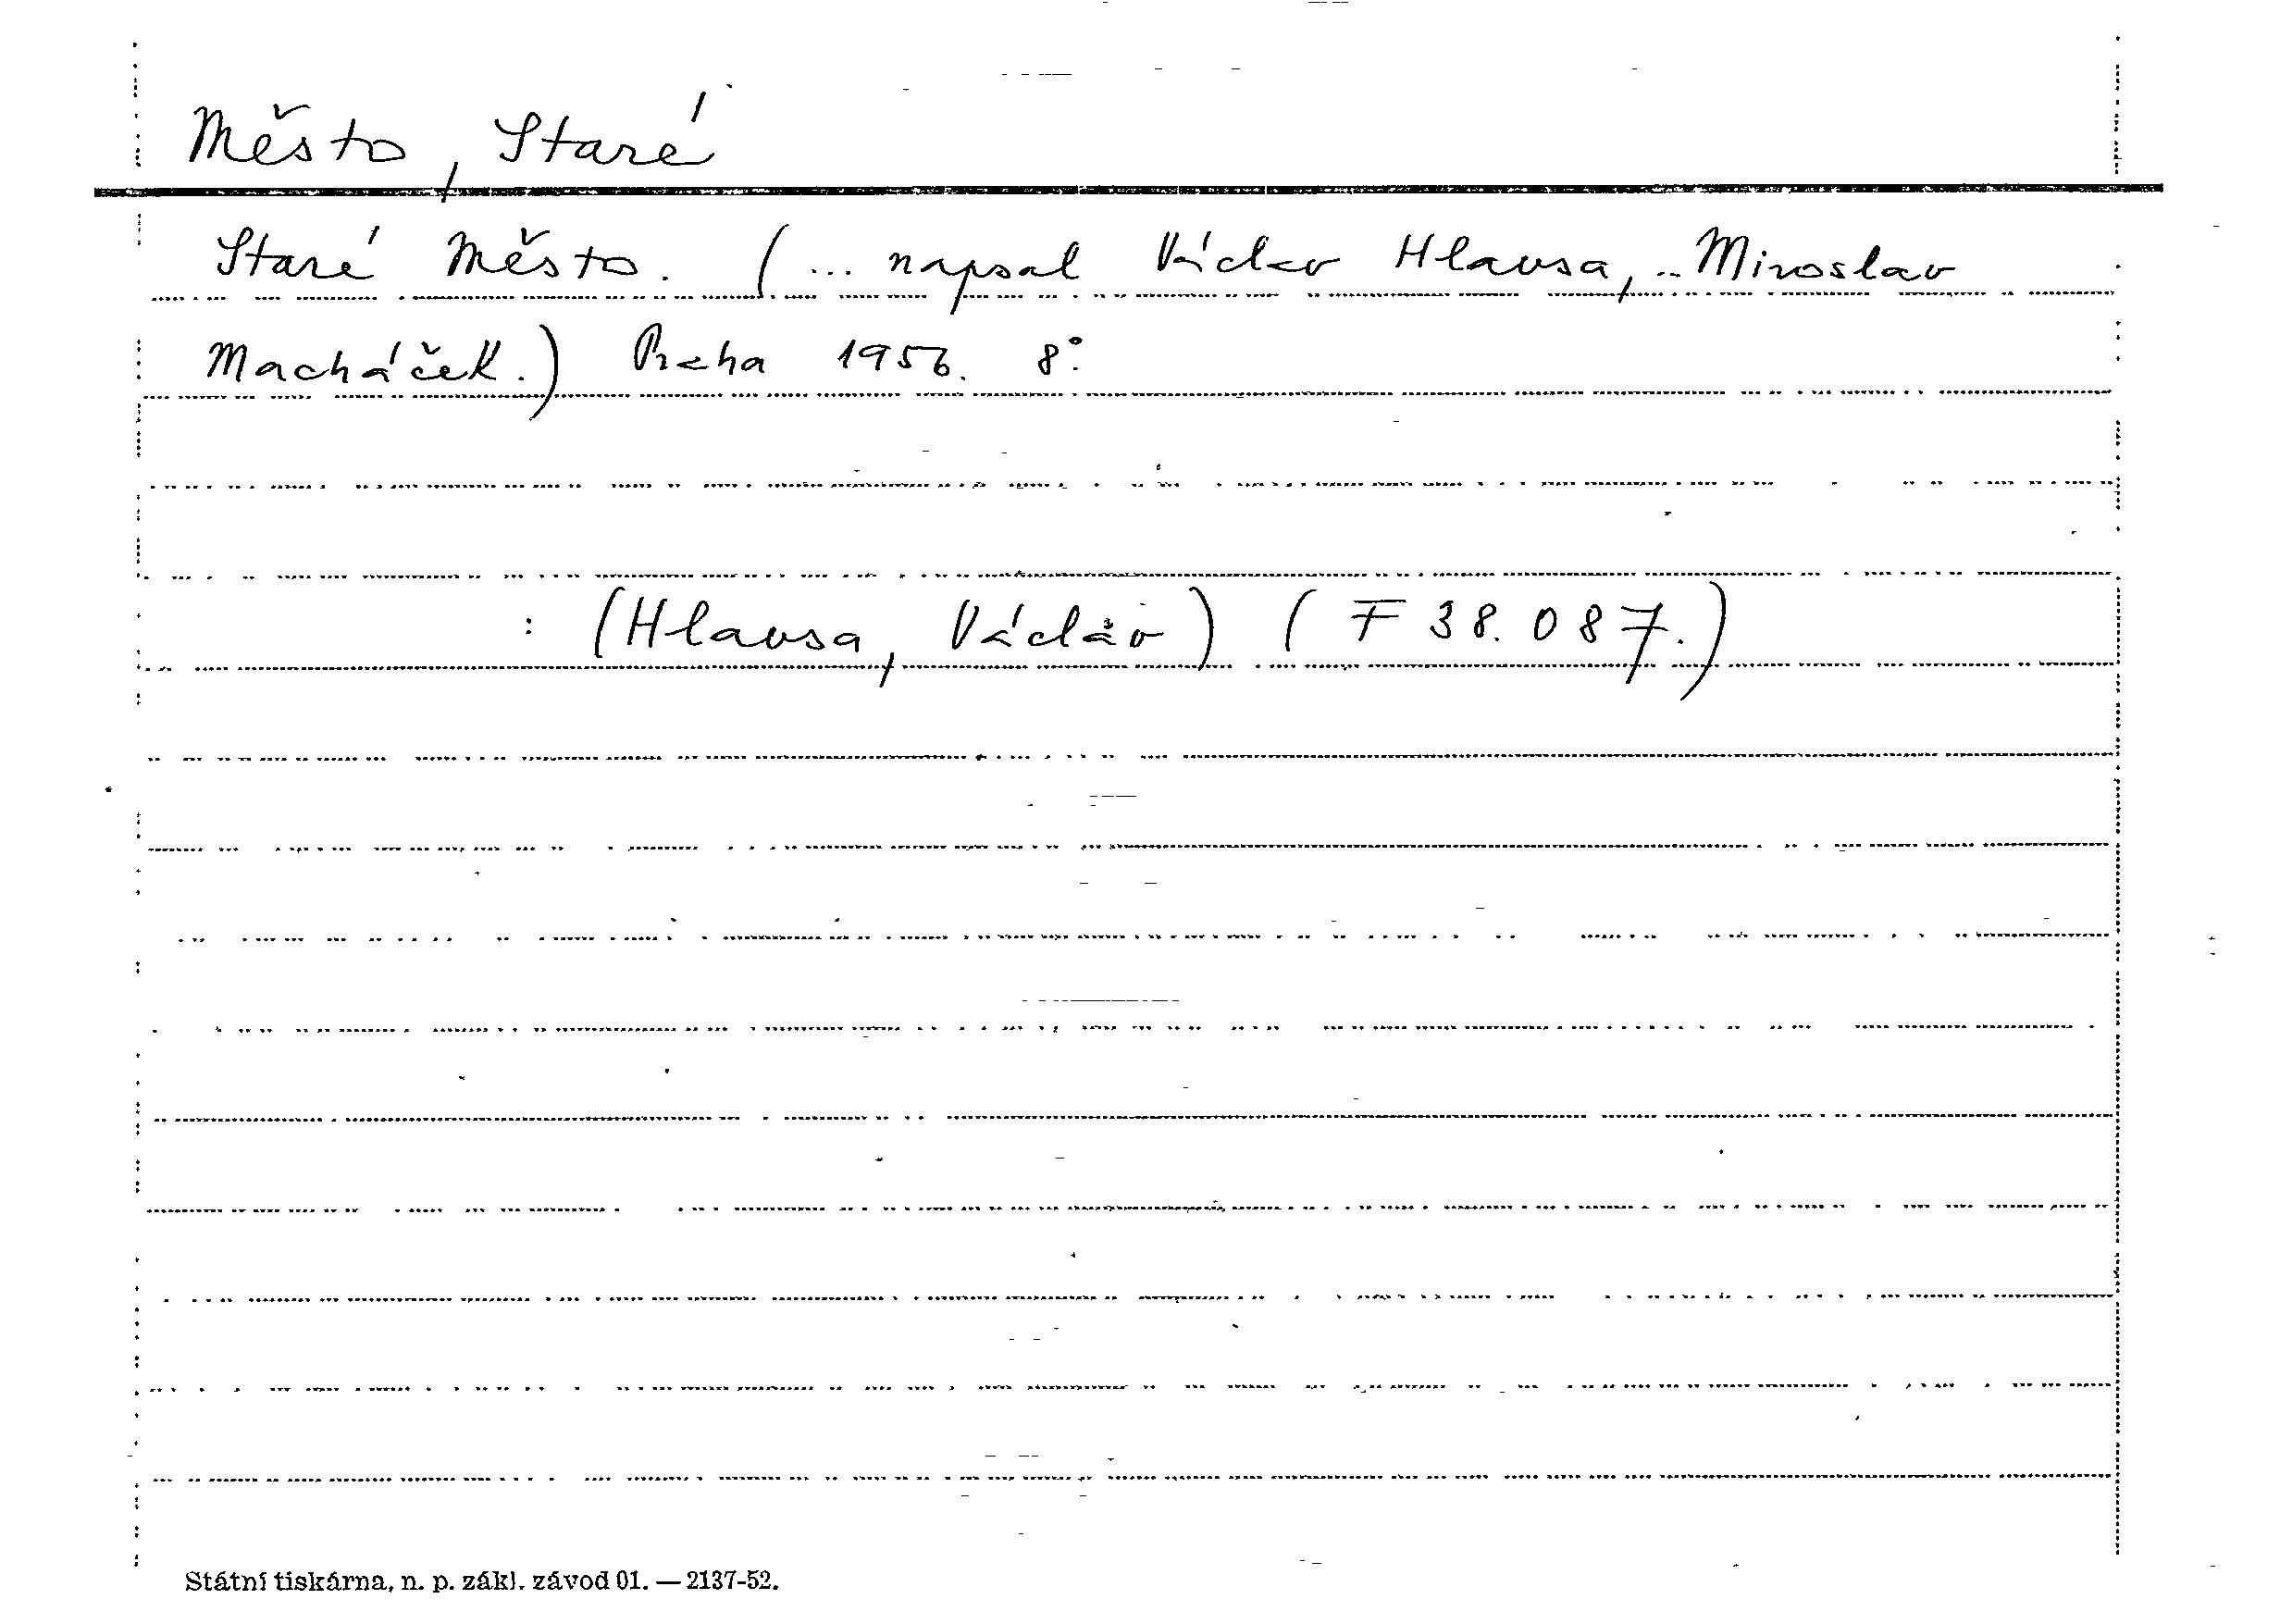 Město, Staré
Staré Město. (... napsal Václav Hlavsa, .. Miroslav
Macháček.) Praha 1956. 8°.
: (Hlavsa, Václav) (F 38.087.)
Státní tiskárna, n. p. zákl. závod 01. — 2137-52.